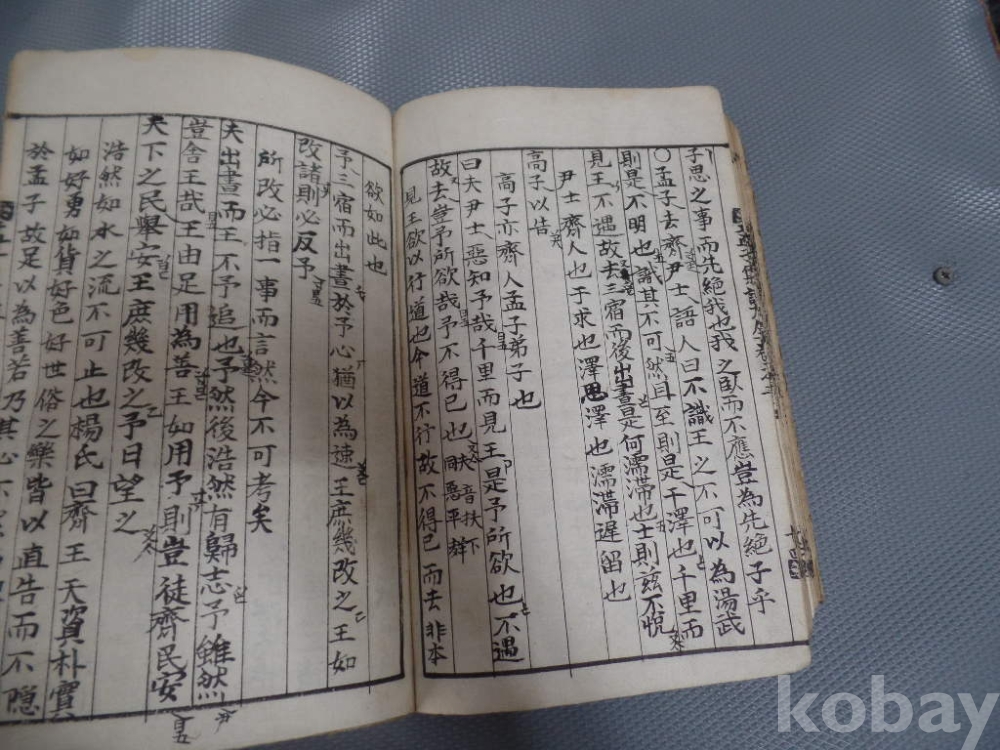 子思之事而先絶我也我之臥而不應豈為先絶子乎
○孟子去齊尹士語人曰不識王之不可以為湯武
則是不明也識其不可然且至則是干澤也千里而
見王不遇故去三宿而後出晝是何濡滯也士則玆不悅
尹士齊人也干求也澤恩澤也濡滯遲留也
高子以告
高子亦齊人孟子弟子也
曰夫尹士惡知予哉千里而見王是予所欲也不遇
故去豈予所欲哉予不得已也 夫音扶下同惡平聲
見王欲以行道也今道不行故不得已而去非本
欲如此也
予三宿而出晝於予心猶以為速王庶幾改之王如
改諸則必反予
所改必指一事而言然今不可考矣
夫出晝而王不予追也予然後浩然有歸志予雖然
豈舍王哉王由足用為善王如用予則豈徒齊民安
天下之民舉安王庶幾改之予日望之
浩然如水之流不可止也楊氏曰齊王天資朴實
如好勇好貨好色好世俗之樂皆以直告而不隱
於孟子故足以為善若乃其心不
kobay